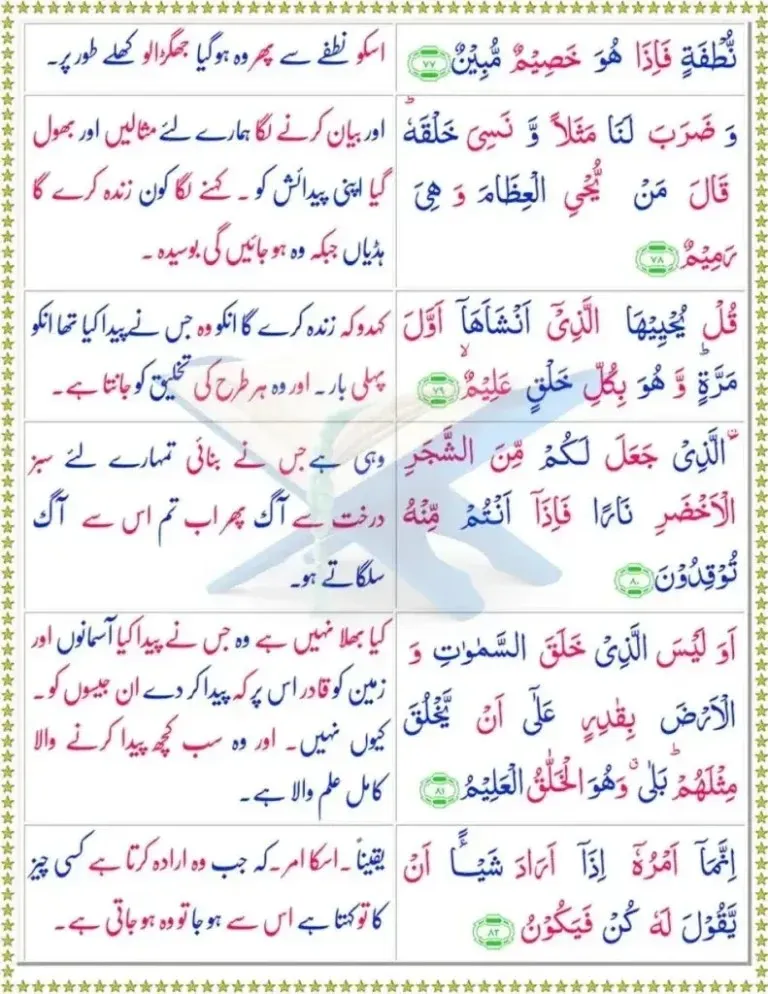 نُّطْفَةٍ فَاِذَا هُوَ خَصِيْمٌ مُّبِيْنٌ ﴿٧٧﴾
اسکو نطفے سے پھر وہ ہوگیا جھگڑالو کھلے طور پر۔
وَ ضَرَبَ لَنَا مَثَلاً وَّ نَسِىَ خَلْقَهٗ ؕ
قَالَ مَنْ يُّحْىِ الْعِظَامَ وَ هِىَ
رَمِيْمٌ ﴿٧٨﴾
اور بیان کرنے لگا ہمارے لئے مثالیں اور بھول
گیا اپنی پیدائش کو ۔ کہنے لگا کون زندہ کرے گا
ہڈیاں جبکہ وہ ہو جائیں گی بوسیدہ ۔
قُلْ يُحْيِيْهَا الَّذِىْۤ اَنْشَاَهَاۤ اَوَّلَ
مَرَّةٍ ؕ وَّ هُوَ بِكُلِّ خَلْقٍ عَلِيْمٌ ۙ ﴿٧٩﴾
کہدو کہ زندہ کرے گا انکو وہ جس نے پیدا کیا تھا انکو
پہلی بار ۔ اور وہ ہر طرح کی تخلیق کو جانتا ہے ۔
الَّذِىْ جَعَلَ لَـكُمْ مِّنَ الشَّجَرِ
الْاَخْضَرِ نَارًا فَاِذَاۤ اَنْتُمْ مِّنْهُ
تُوْقِدُوْنَ ﴿٨٠﴾
وہی ہے جس نے بنائی تمہارے لئے سبز
درخت سے آگ پھر اب تم اس سے آگ
سلگاتے ہو۔
اَوَ لَيْسَ الَّذِىْ خَلَقَ السَّمٰوٰتِ وَ
الْاَرْضَ بِقٰدِرٍ عَلٰٓى اَنْ يَّخْلُقَ
مِثْلَهُمْ ؕ بَلٰى ۚ وَهُوَ الْخَلّٰقُ الْعَلِيْمُ ﴿٨١﴾
کیا بھلا نہیں ہے وہ جس نے پیدا کیا آسمانوں اور
زمین کو قادر اس پر کہ پیدا کر دے ان جیسوں کو ۔
کیوں نہیں۔ اور وہ سب کچھ پیدا کرنے والا
کامل علم والا ہے۔
اِنَّمَاۤ اَمْرُهٗۤ اِذَاۤ اَرَادَ شَیْـــًٔا اَنْ
يَّقُوْلَ لَهٗ كُنْ فَيَكُوْنُ ﴿٨٢﴾
یقیناً ۔ اسکا امر ۔ کہ جب وہ ارادہ کرتا ہے کسی چیز
کا تو کہتا ہے اس سے ہو جا تو وہ ہو جاتی ہے ۔